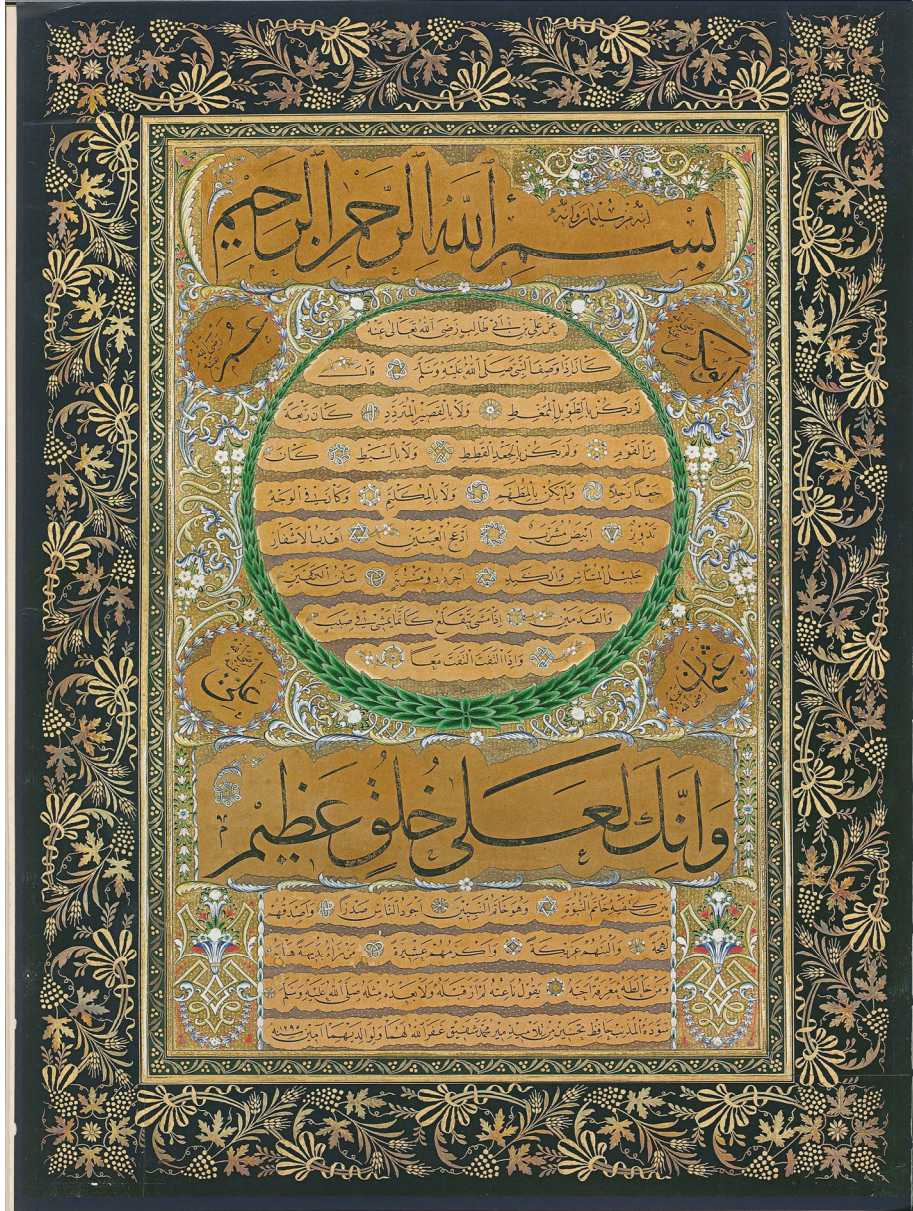 بسم الله الرحمن الرحيم
انه من سليمان وانه
ابو بكر رضى الله عنه
عمر رضى الله عنه
عن علي بن ابي طالب رضي الله تعالى عنه
كان اذا وصف النبي صلى الله عليه وسلم قال
لم يكن بالطويل الممغط ولا بالقصير المتردد كان ربعة
من القوم ولم يكن بالجعد القطط ولا بالسبط كان
جعدا رجلا ولم يكن بالمطهم ولا بالمكلثم وكان في الوجه
تدوير ابيض مشرب ادعج العينين اهدب الاشفار
جليل المشاش والكتد اجرد ذو مسربة شثن الكفين
والقدمين اذا مشى تقلع كانما يمشي في صبب
واذا التفت التفت معا
عثمان رضى الله عنه
علي رضى الله عنه
وانك لعلى خلق عظيم
بين كتفيه خاتم النبوة وهو خاتم النبيين اجود الناس صدرا واصدقهم
لهجة والينهم عريكة واكرمهم عشيرة من رآه بديهة هابه
ومن خالطه معرفة احبه يقول ناعته لم ار قبله ولا بعده مثله صلى الله عليه وسلم
سوده المذنب حافظ تحسين من تلاميذ محمد شفيق غفر الله لهما ولوالديهما آمين ١٢٩٥